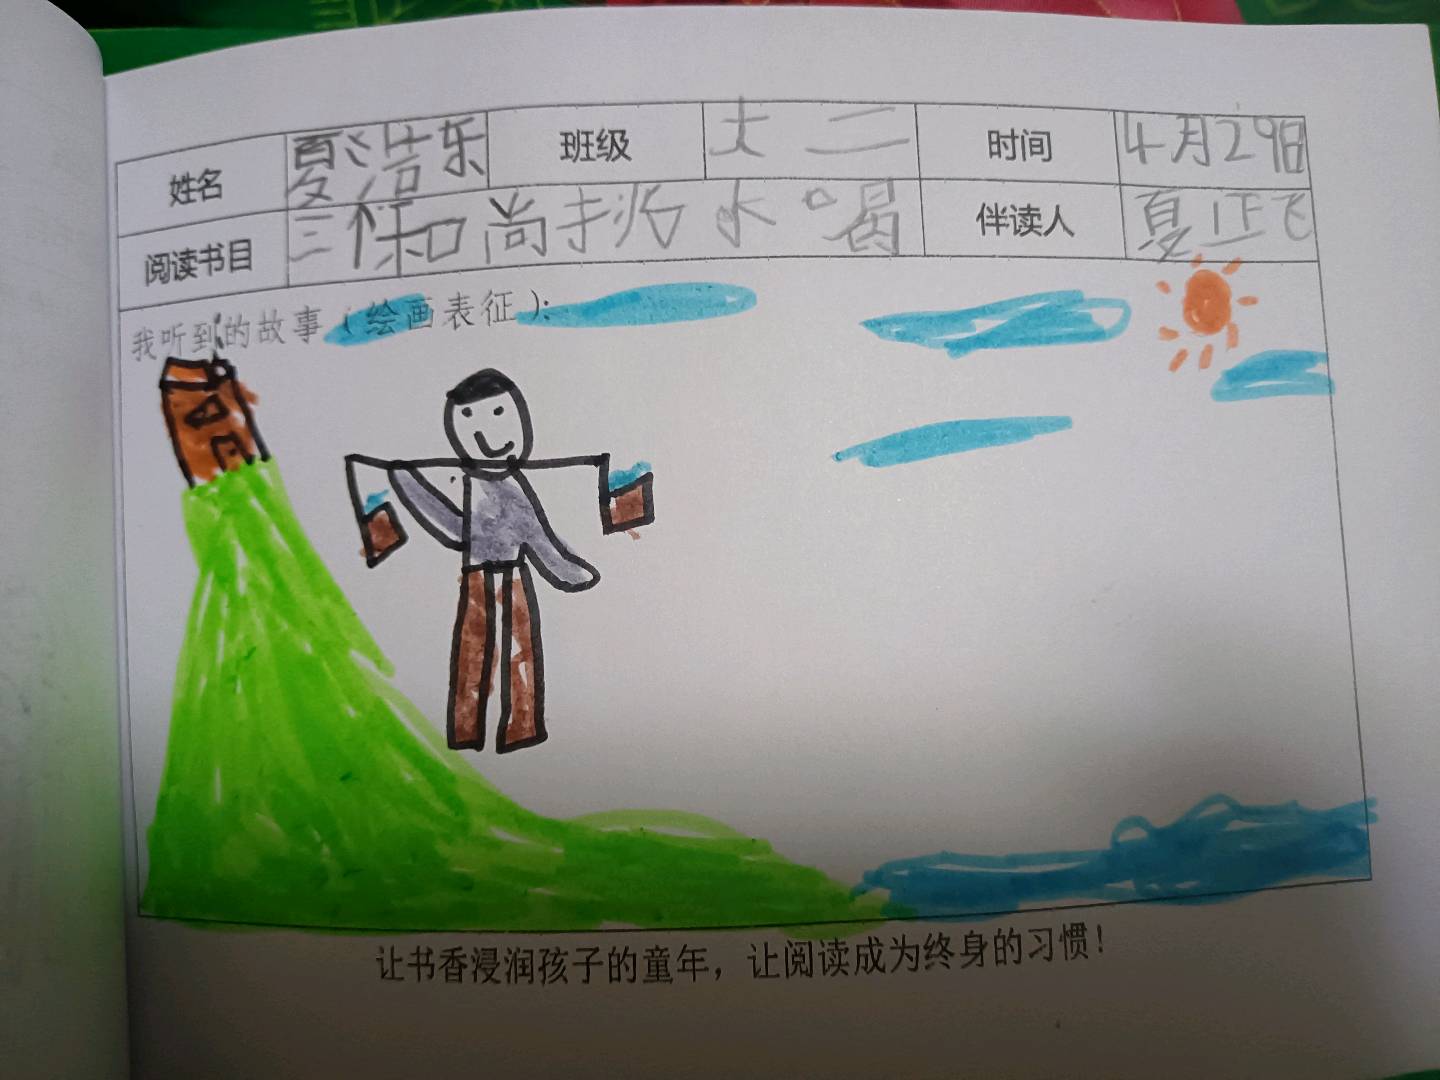 姓名 夏浩东 班级 大二 时间 4月29日
阅读书目 三个和尚挑水喝 伴读人 夏正飞
我听到的故事（绘画表征）：
让书香浸润孩子的童年，让阅读成为终身的习惯！